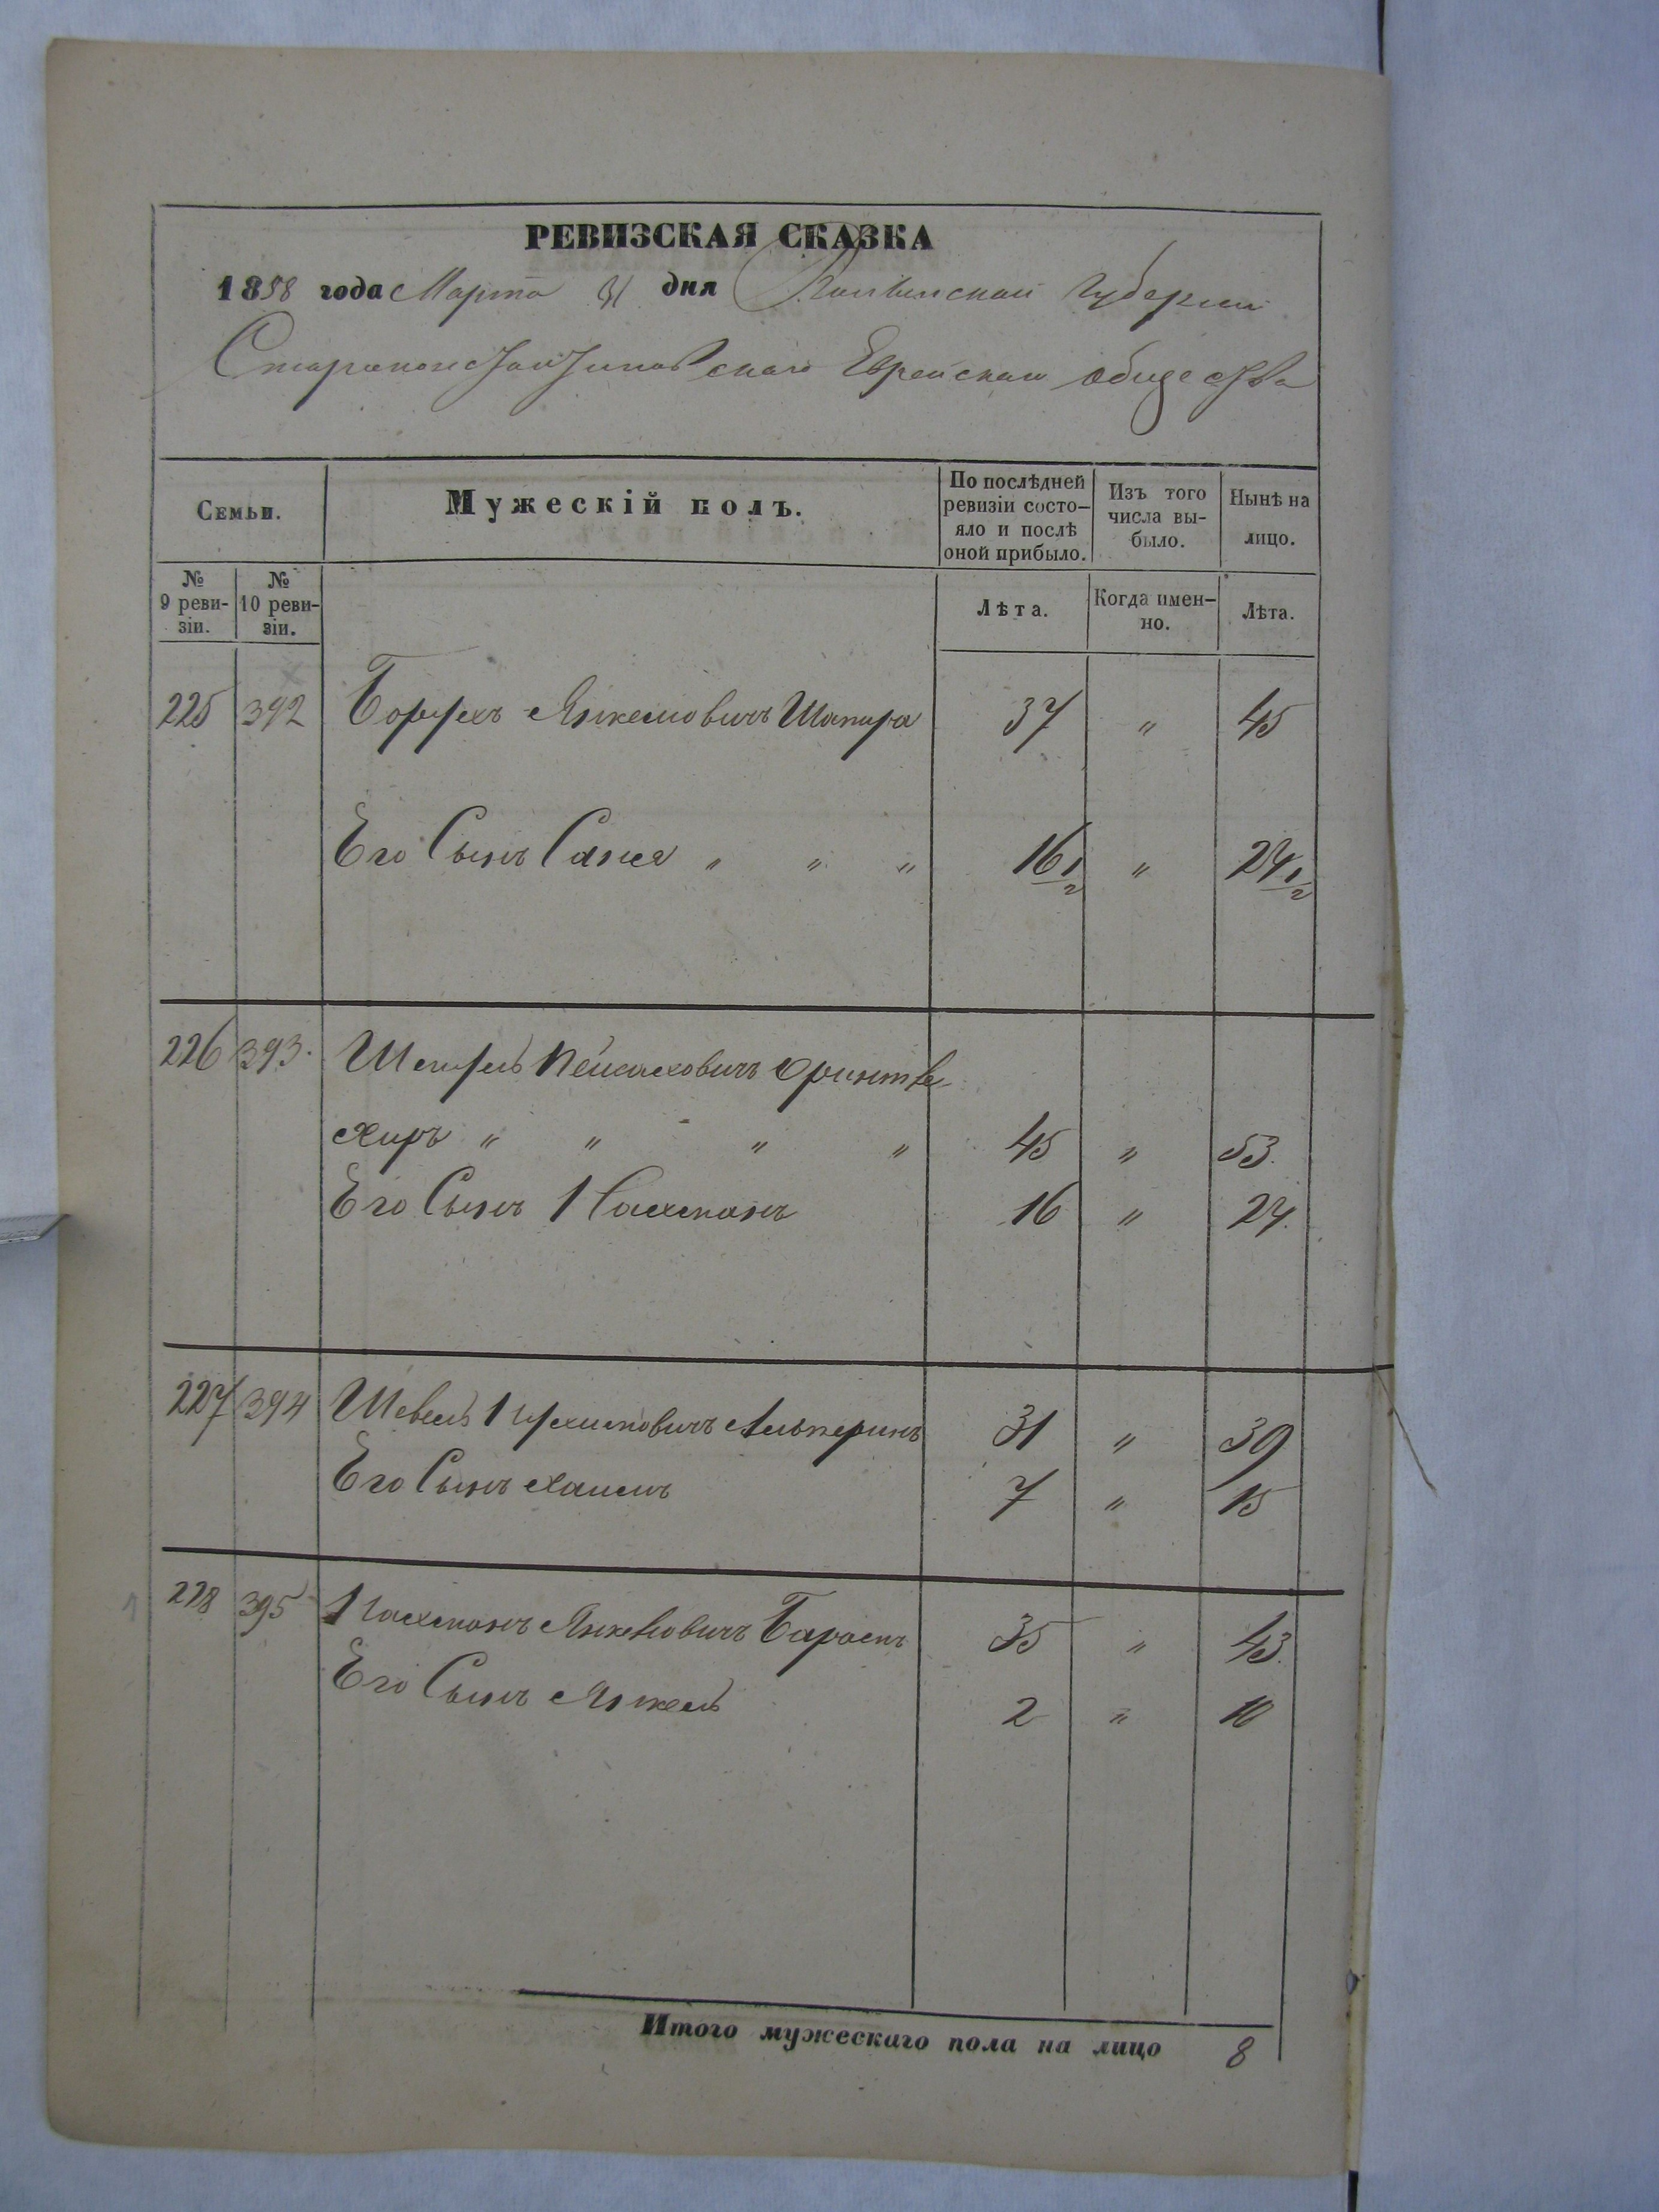 РЕВИЗСКАЯ СКАЗКА
1858 года Марта 31 дня Волынской Губернии
Староконстантиновскаго Еврейскаго общества
Семьи.
Мужескій полъ.
По послѣдней ревизіи состо-
яло и послѣ
оной прибыло.
Изъ того
числа вы-
было.
Нынѣ на
лицо.
№
9 реви-
зіи.
№
10 реви-
зіи.
Лѣта.
Когда имен-
но.
Лѣта.
225 392 Борухъ Янкелiовичъ Шапира 37 " 45
Его Сынъ " " " 16 1/2 " 24 1/2
226 393. Пейсаховичъ
" " " " 45 " 53.
Его Сынъ Нахманъ 16 " 24.
227 394 Шевель Нухимовичъ Альперинъ 31 " 39
Его Сынъ Хаимъ 7 " 15
228 395 Нахманъ Янкелiовичъ 35 " 43.
Его Сынъ Янкель 2 " 10
Итого мужескаго пола на лицо 8